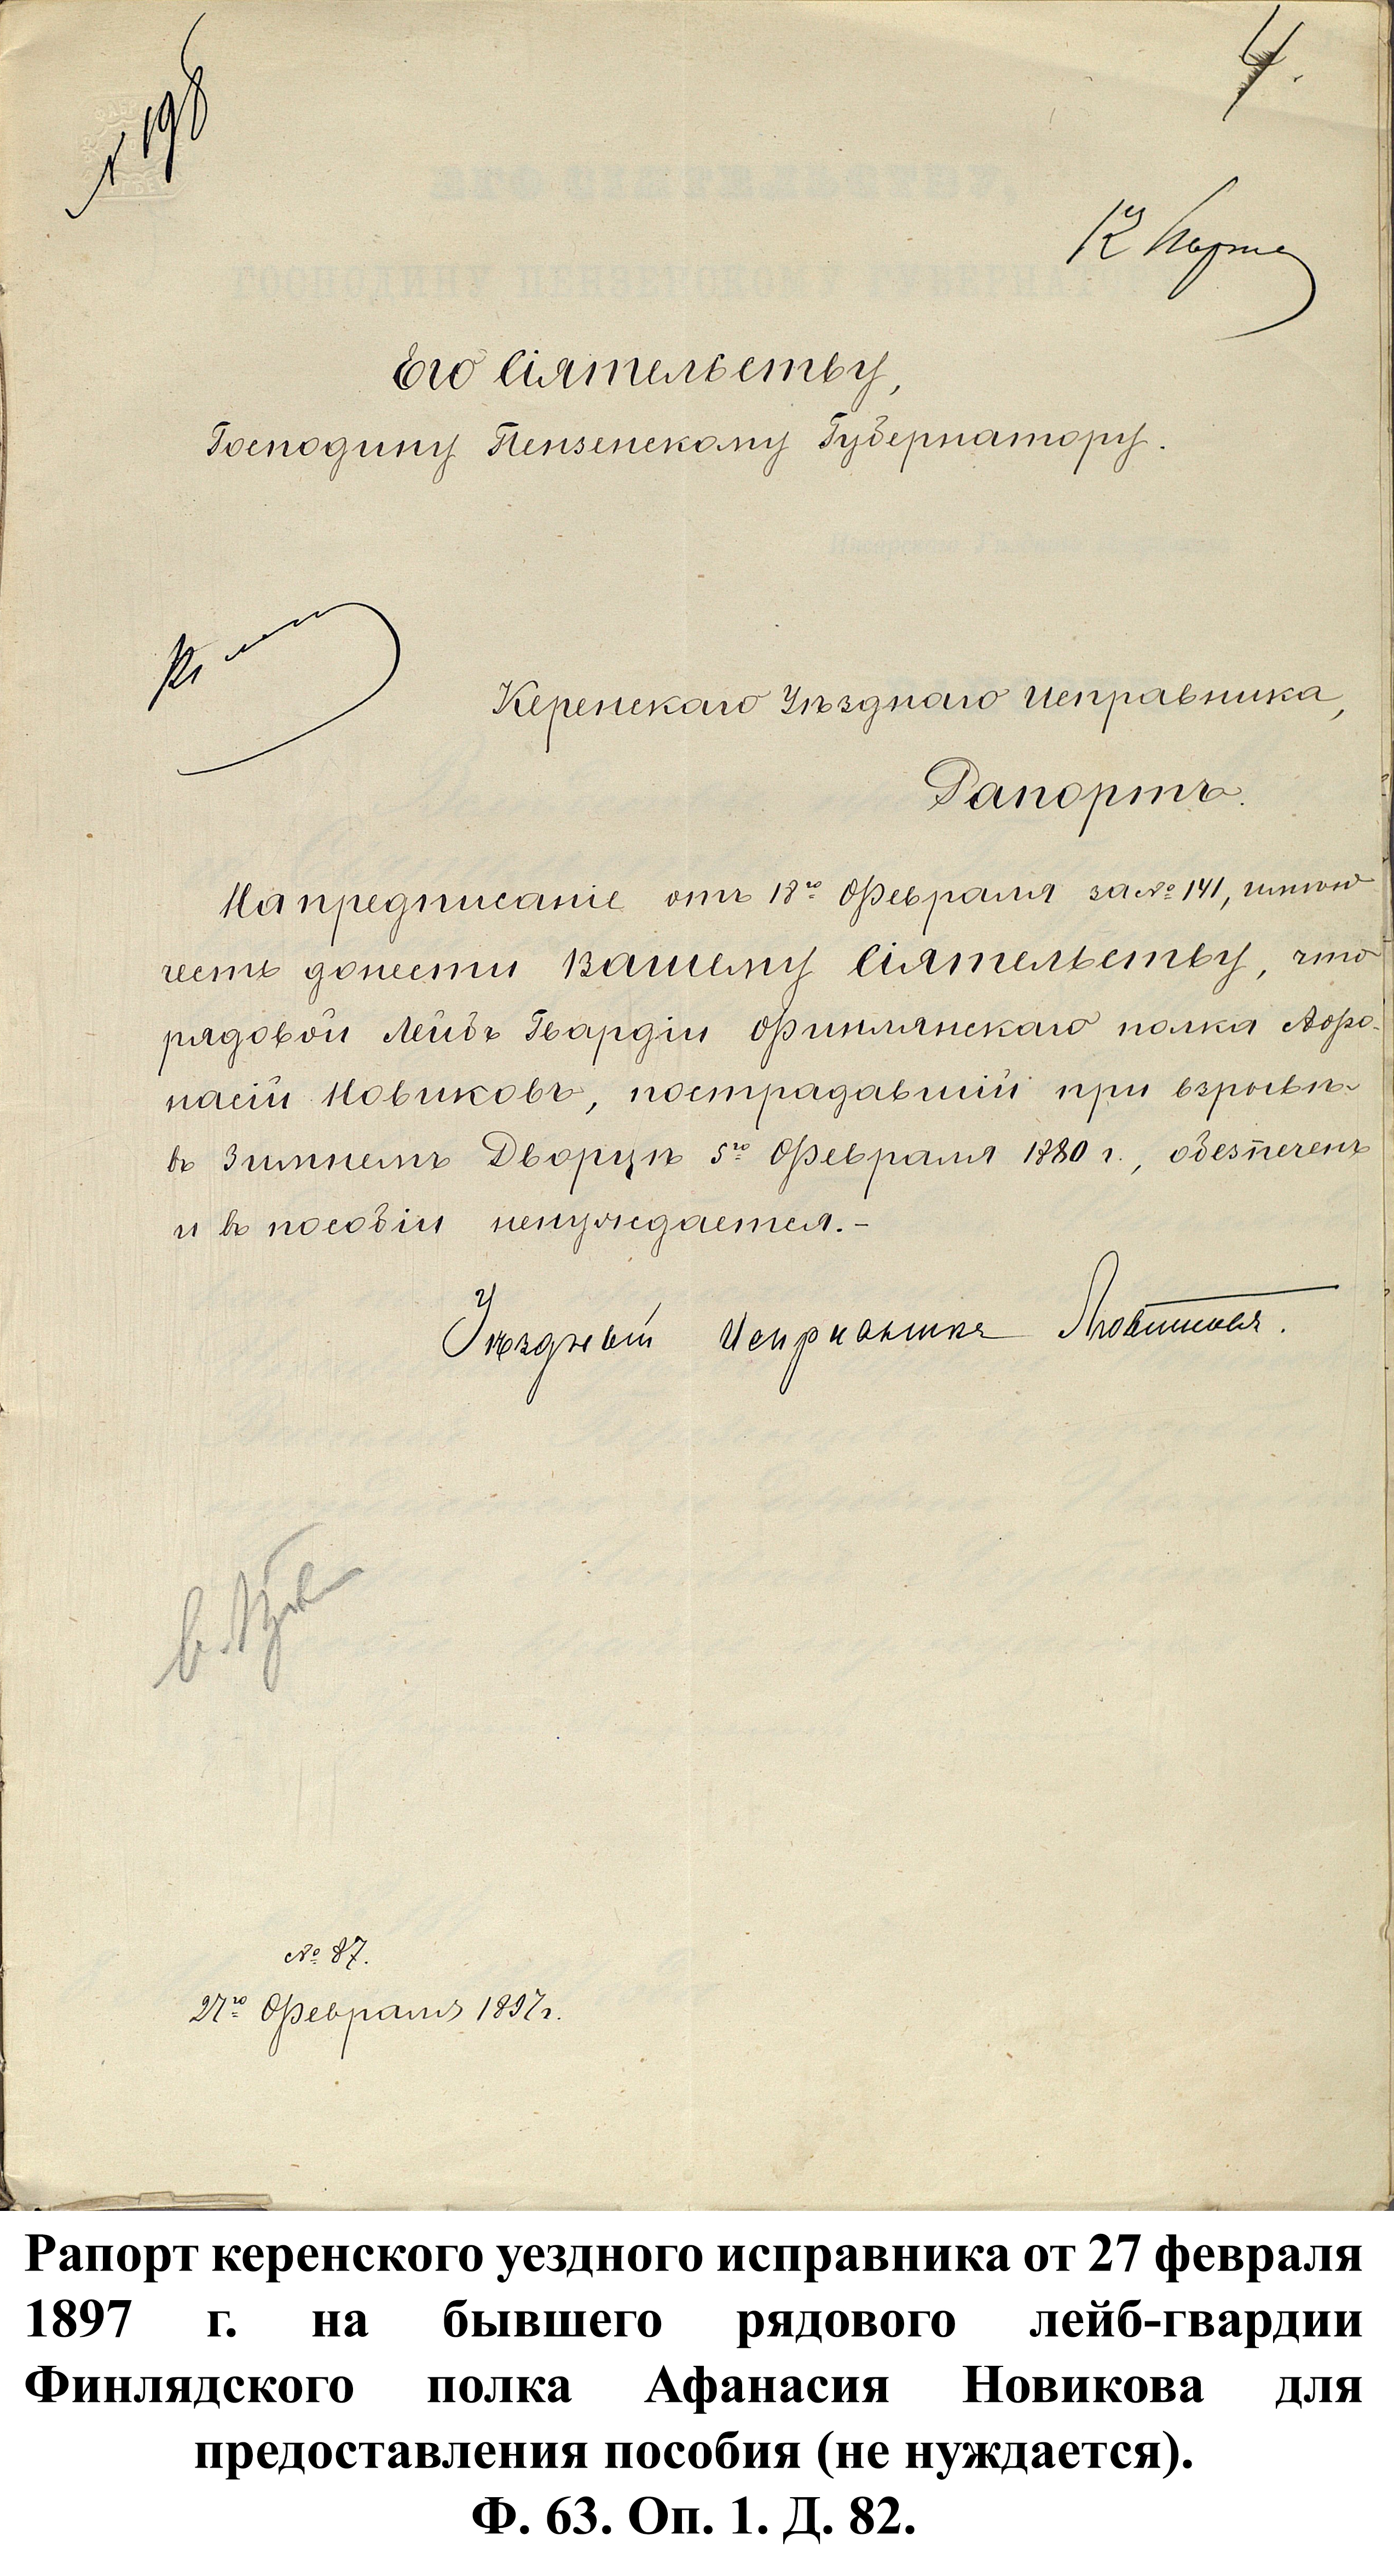 № 198
4.
Его Сіятельству,
Господину Пензенскому Губернатору.
Керенскаго Уѣзднаго исправника,
Рапортъ.
На предписаніе отъ 18го Февраля за № 141, имѣю
честь донести Вашему Сіятельству, что
рядовой Лейбъ Гвардіи Финлянскаго полка Афо-
насій Новиковъ, пострадавшій при взрывѣ
въ Зимнемъ Дворцѣ 5го Февраля 1880 г., обезпеченъ
и въ пособіи ненуждается.-
Уѣздный Исправникъ
№ 87.
27го Февраля 1897 г.
Рапорт керенского уездного исправника от 27 февраля
1897 г. на бывшего рядового лейб-гвардии
Финлядского полка Афанасия Новикова для
предоставления пособия (не нуждается).
Ф. 63. Оп. 1. Д. 82.